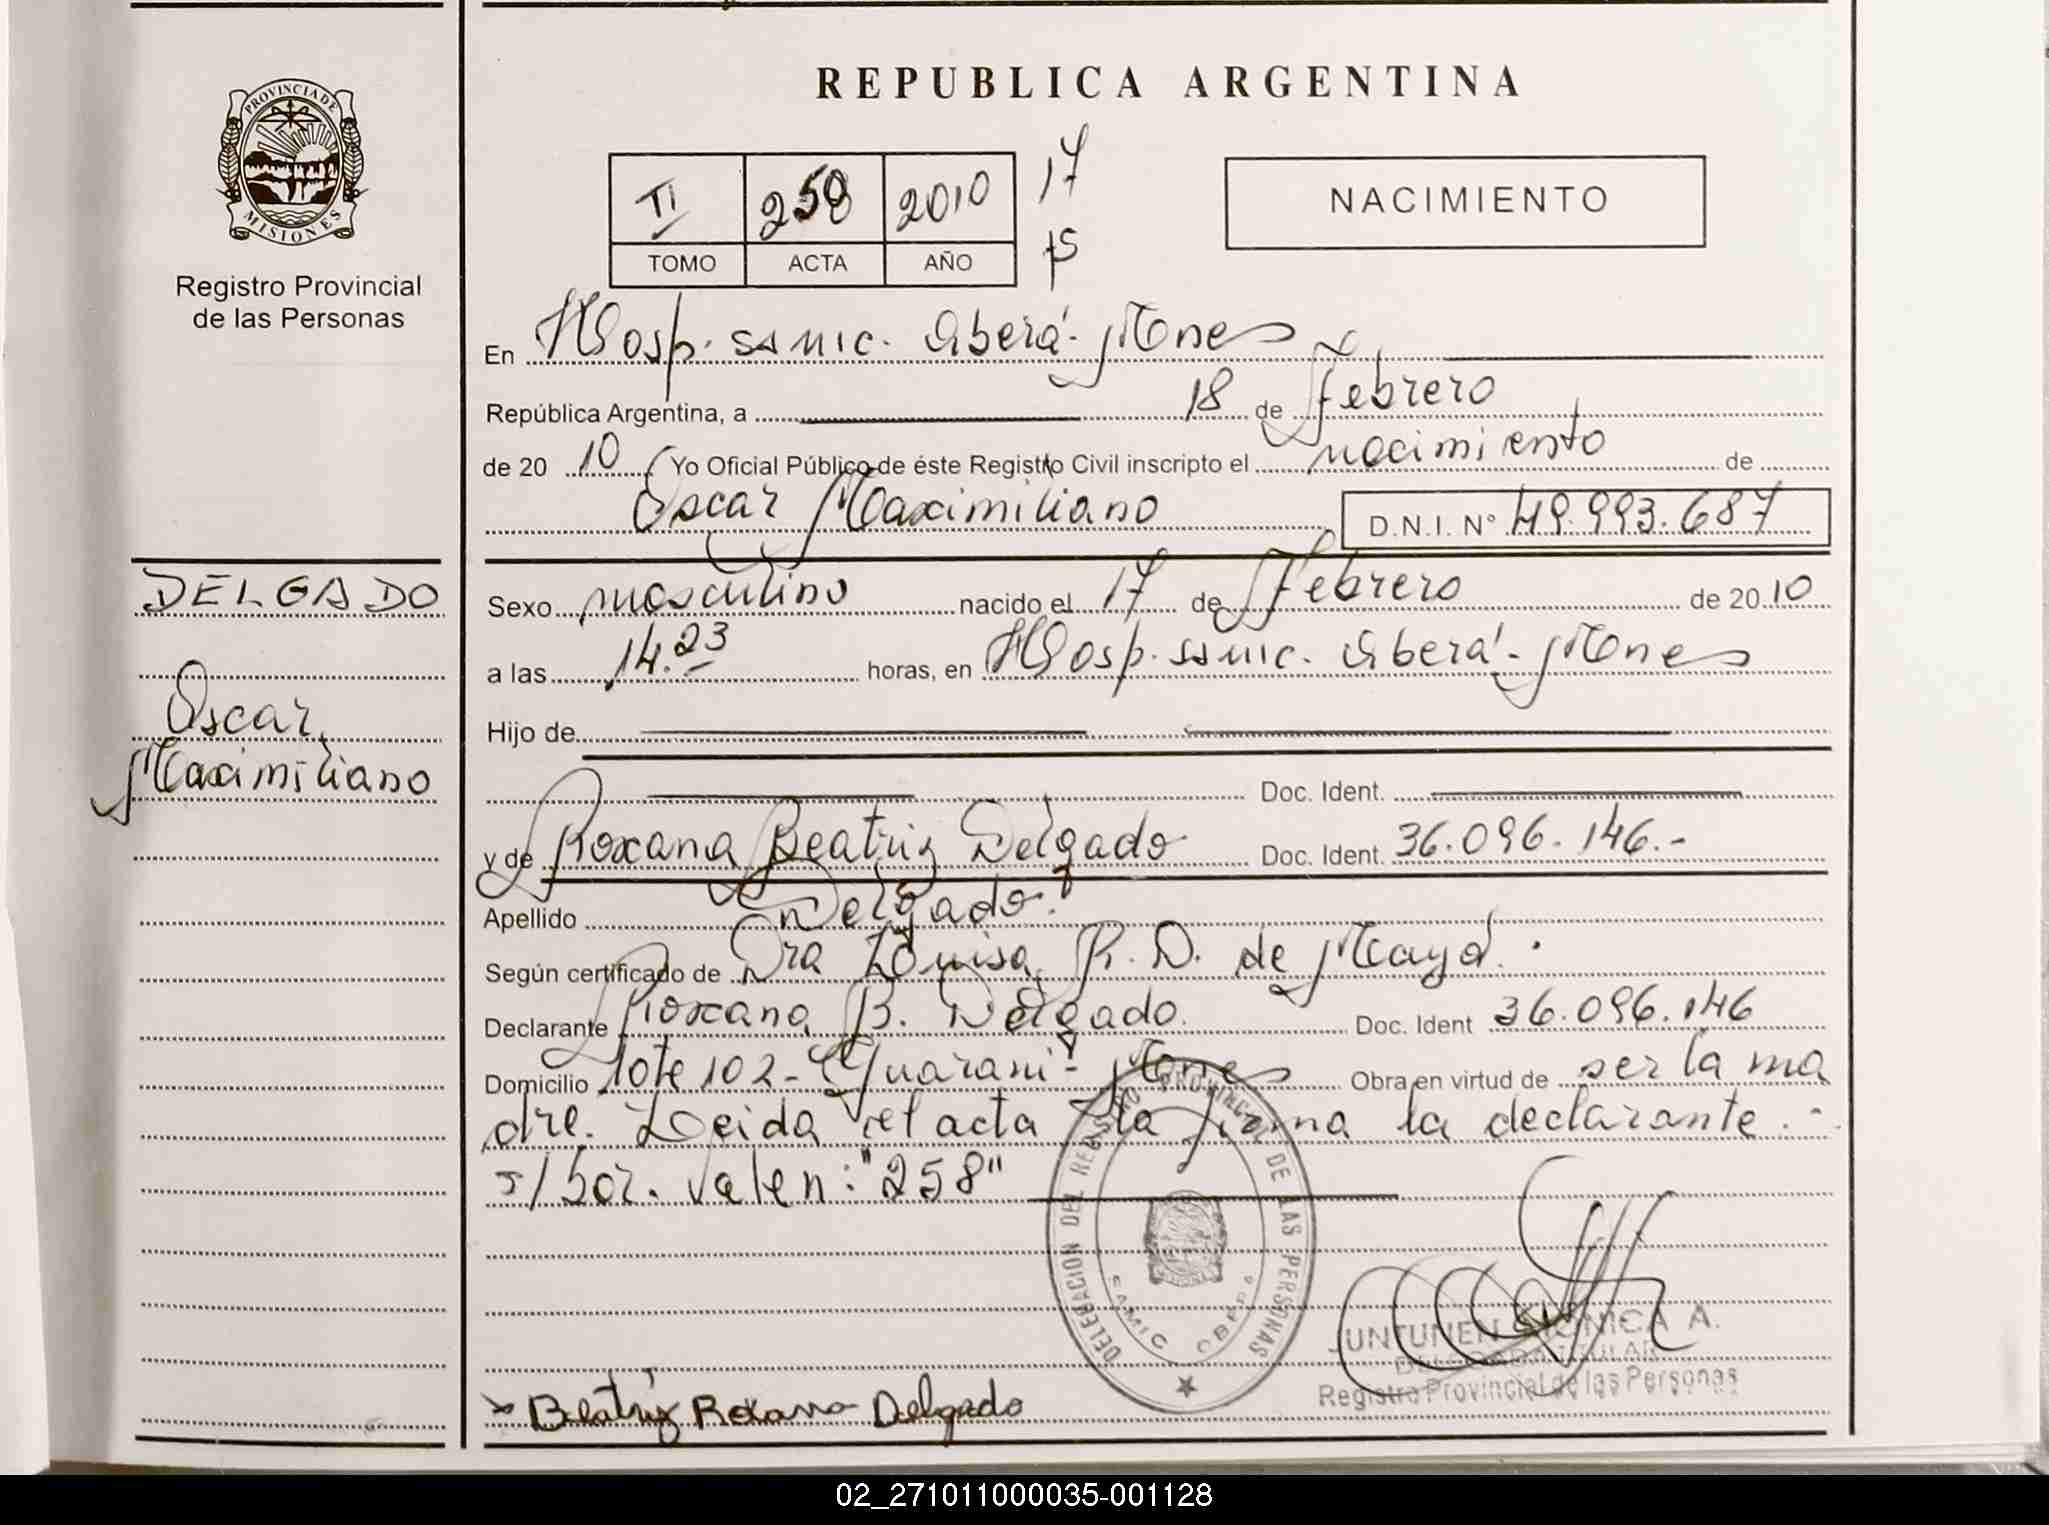 REPUBLICA ARGENTINA
PROVINCIA DE
MISIONES
Registro Provincial
de las Personas
II 258 2010 17
TOMO ACTA AÑO
NACIMIENTO
En Hosp. samic. Oberá - Mones
República Argentina, a 18 de Febrero
de 20 10 Yo Oficial Público de éste Registro Civil inscripto el nacimiento de
Oscar Maximiliano D.N.I. N° 49.993.687
DELGADO
Oscar
Maximiliano
Sexo masculino nacido el 17 de Febrero de 20 10
a las 14.23 horas, en Hosp. samic. Oberá - Mones
Hijo de
Doc. Ident.
y de Roxana Beatriz Delgado Doc. Ident. 36.096.146.-
Apellido Delgado.
Según certificado de Dra Luisa R. D. de Mayol.
Declarante Roxana B. Delgado Doc. Ident 36.096.146
Domicilio lote 102 - Guarani - Mones Obra en virtud de ser la ma
dre. Leida el acta la firma la declarante.
s/bor. valen: "258"
DELEGACION DEL REGISTRO PROVINCIAL DE LAS PERSONAS
SAMIC OBERA
JUNTUNEN MONICA A.
DELEGADA TITULAR
Registro Provincial de las Personas
Beatriz Roxana Delgado
02_271011000035-001128